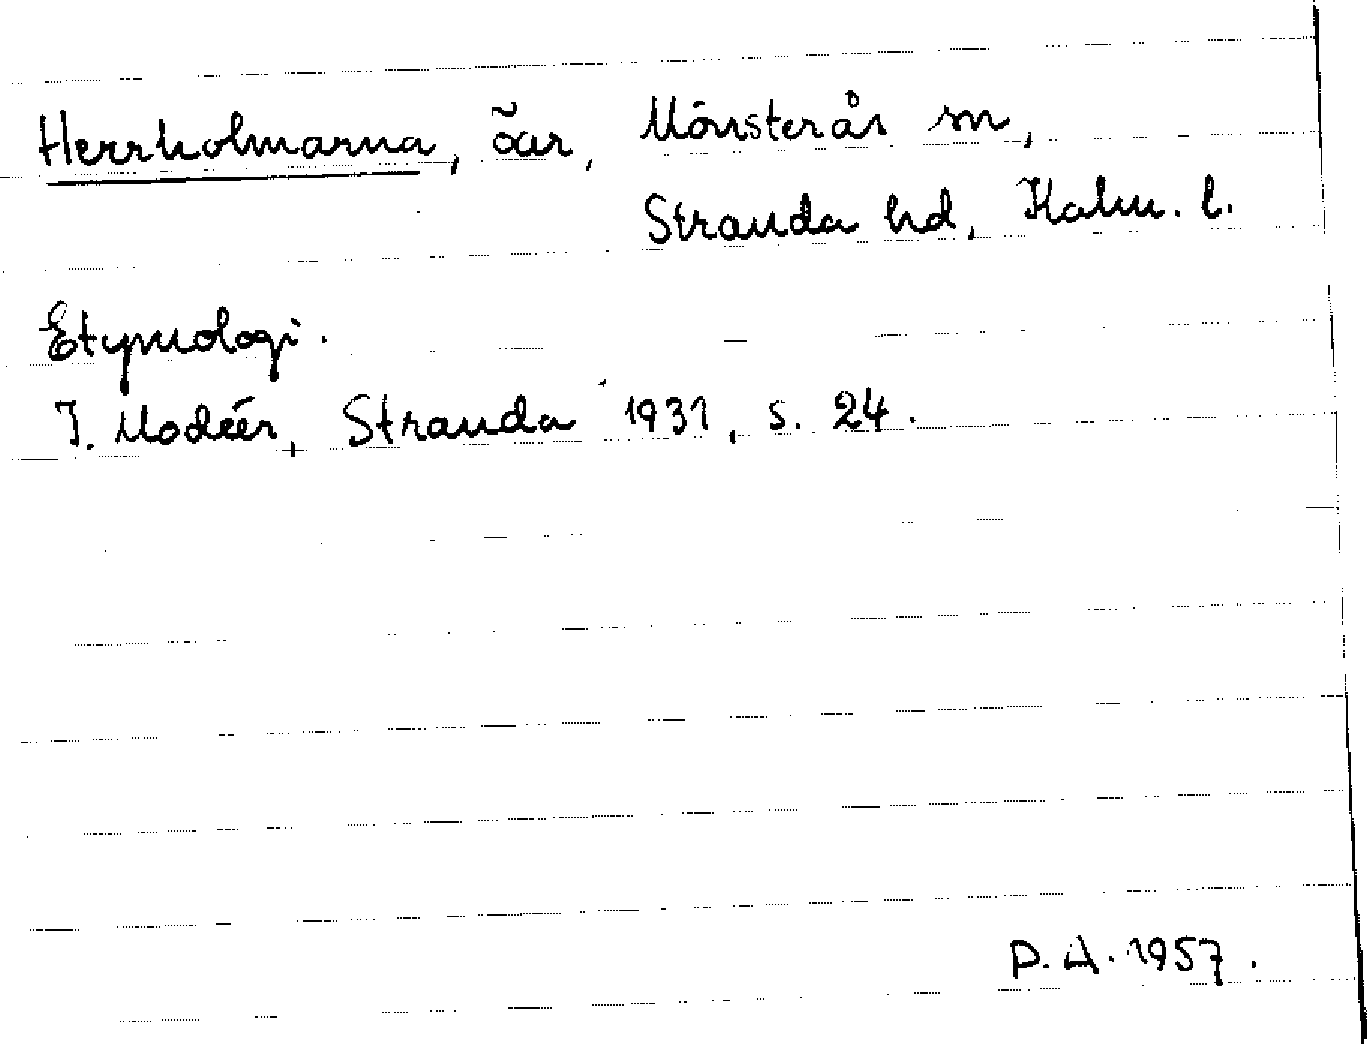 Herrholmarna, öar, Mönsterås sn,
Stranda hd, Kalm. l.
Etymologi.
I. Modéer, Stranda 1931, s. 24.
P. A. 1957.